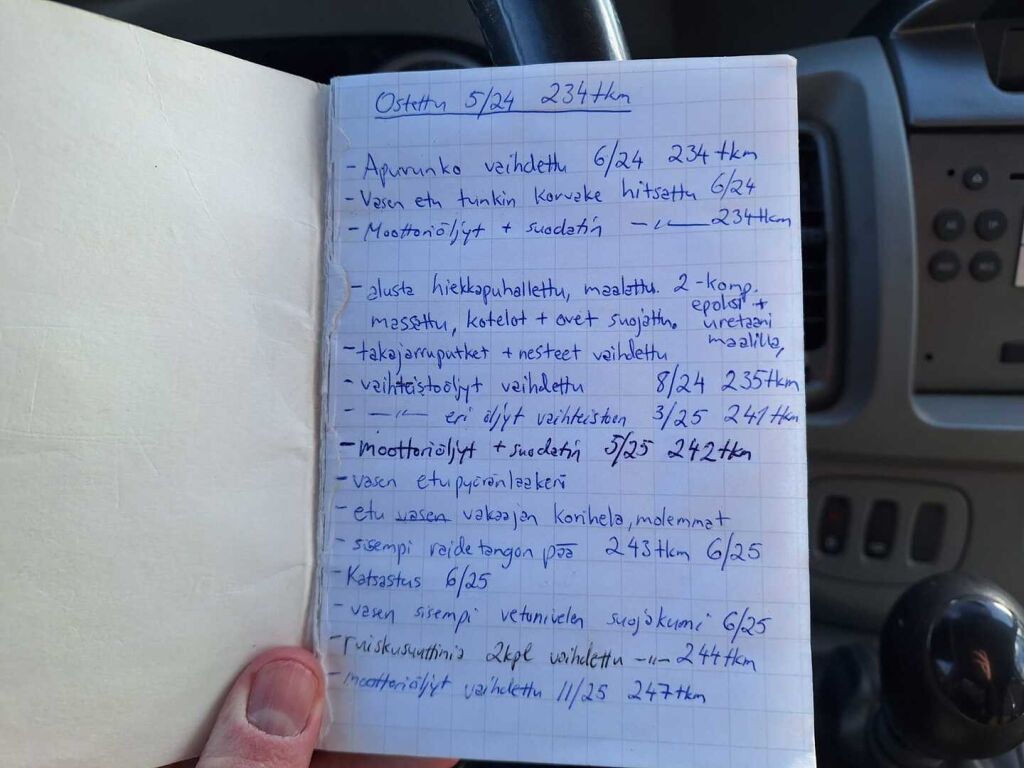 Ostettu 5/24 234tkm
- Apurunko vaihdettu 6/24 234tkm
- Vasen etu tunkin korvake hitsattu 6/24
- Moottoriöljyt + suodatin —"— 234tkm
- alusta hiekkapuhallettu, maalattu 2-komp. epoksi + uretaani maalilla,
massattu, kotelot + ovet suojattu.
- takajarruputket + nesteet vaihdettu
- vaihteistoöljyt vaihdettu 8/24 235tkm
- —"— eri öljyt vaihteistoon 3/25 241tkm
- moottoriöljyt + suodatin 5/25 242tkm
- vasen etupyöränlaakeri
- etu vasen vakaajan korihela, molemmat
- sisempi raidetangon pää 243tkm 6/25
- Katsastus 6/25
- vasen sisempi vetonivelen suojakumi 6/25
- ruiskusuuttimia 2kpl vaihdettu —"— 244tkm
- moottoriöljyt vaihdettu 11/25 247tkm